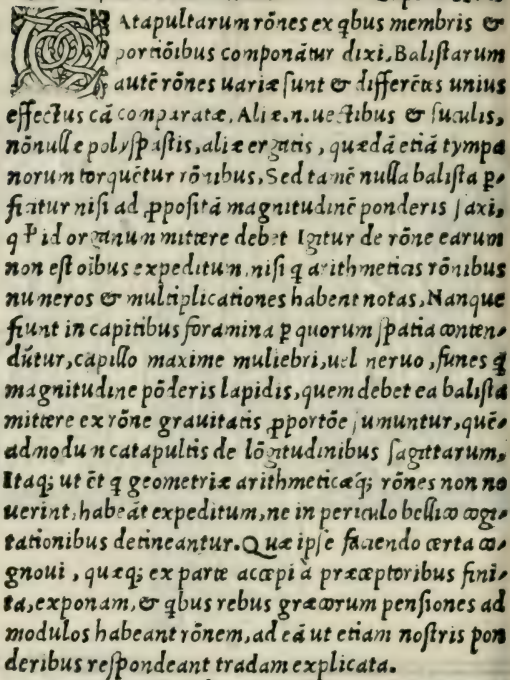 CAtapultarum rõnes ex qbus membris &
portiõibus componãtur dixi, Balistarum
autẽ rõnes uariæ sunt & differẽtes unius
effectus cã comparatæ. Aliæ.n. uectibus & suculis,
nõnullæ polyspastis, aliæ ergatis, quædã etiã tympa
norum torquẽtur rõnibus, Sed tamẽ nulla balista ꝑ-
ficitur nisi ad ꝓpositã magnitudinẽ ponderis saxi,
q id organum mittere debet Igitur de rõne earum
non est oibus expeditum, nisi q arithmeticis rõnibus
numeros & multiplicationes habent notas, Nanque
fiunt in capitibus foramina ꝑ quorum spatia conten-
dũtur, capillo maxime muliebri, uel neruo, funes q
magnitudine põderis lapidis, quem debet ea balista
mittere ex rõne grauitatis ꝓportõe sumuntur, quẽ-
admodum catapultis de lõgitudinibus sagittarum,
Itaq; ut ẽt q geometriæ arithmeticæq; rõnes non no
uerint, habeãt expeditum, ne in periculo bellico cogi-
tationibus detineantur. Quæ ipse faciendo certa co-
gnoui, quæq; ex parte accepi à præceptoribus fini-
ta, exponam, & qbus rebus græcorum pensiones ad
modulos habeant rõnem, ad eã ut etiam nostris pon
deribus respondeant tradam explicata.